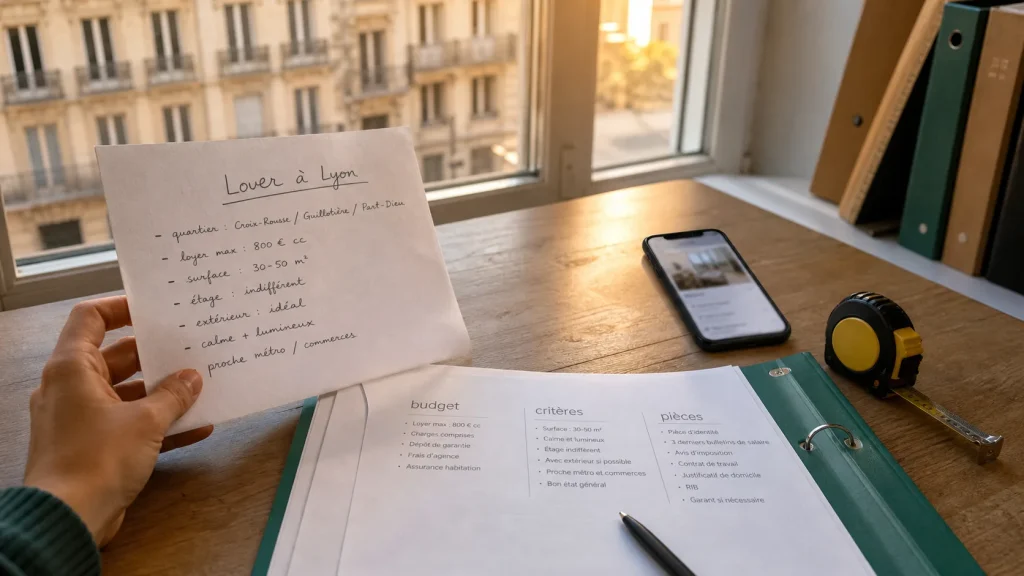 Lover à Lyon
- quartier : Croix-Rousse / Guillotière / Part-Dieu
- loyer max : 800 € cc
- surface : 30-50 m²
- étage : indifférent
- extérieur : idéal
- calme + lumineux
proche métro / commerces
budget
• Loyer max : 800 € cc
• Charges comprises
• Dépôt de garantie
• Frais d'agence
• Assurance habitation
critères
• Surface : 30-50 m²
• Calme et lumineux
• Étage indifférent
• Avec extérieur si possible
• Proche métro et commerces
• Bon état général
pièces
• Pièce d'identité
• 3 derniers bulletins de salaire
• Avis d'imposition
• Contrat de travail
• Justificatif de domicile
• RIB
• Garant si nécessaire